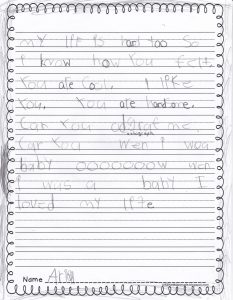 my life is hard too So
I know how you felt.
You are Cool. I like
You. You are handsome.
Can You adgraf me.
autograph
Car You wen I woa
baby oooooow wen
I was a baby I
loved my life
Name